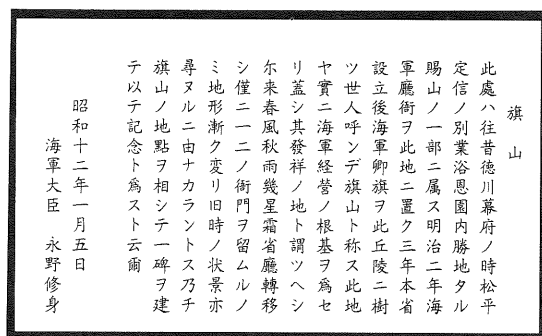 旗山
此處ハ往昔徳川幕府ノ時松平
定信ノ別業浴恩園内勝地タル
賜山ノ一部ニ属ス明治二年海
軍廳衙ヲ此地ニ置ク三年本省
設立後海軍卿旗ヲ此丘陵ニ樹
ツ世人呼ンデ旗山ト称ス此地
ヤ實ニ海軍経営ノ根基ヲ為セ
リ蓋シ其發祥ノ地ト謂ツヘシ
尓来春風秋雨幾星霜省廳轉移
シ僅ニ一二ノ衙門ヲ留ムルノ
ミ地形漸ク変リ旧時ノ状景亦
尋ヌルニ由ナカラントス乃チ
旗山ノ地點ヲ相シテ一碑ヲ建
テ以テ記念ト為スト云爾
昭和十二年一月五日
海軍大臣 永野修身